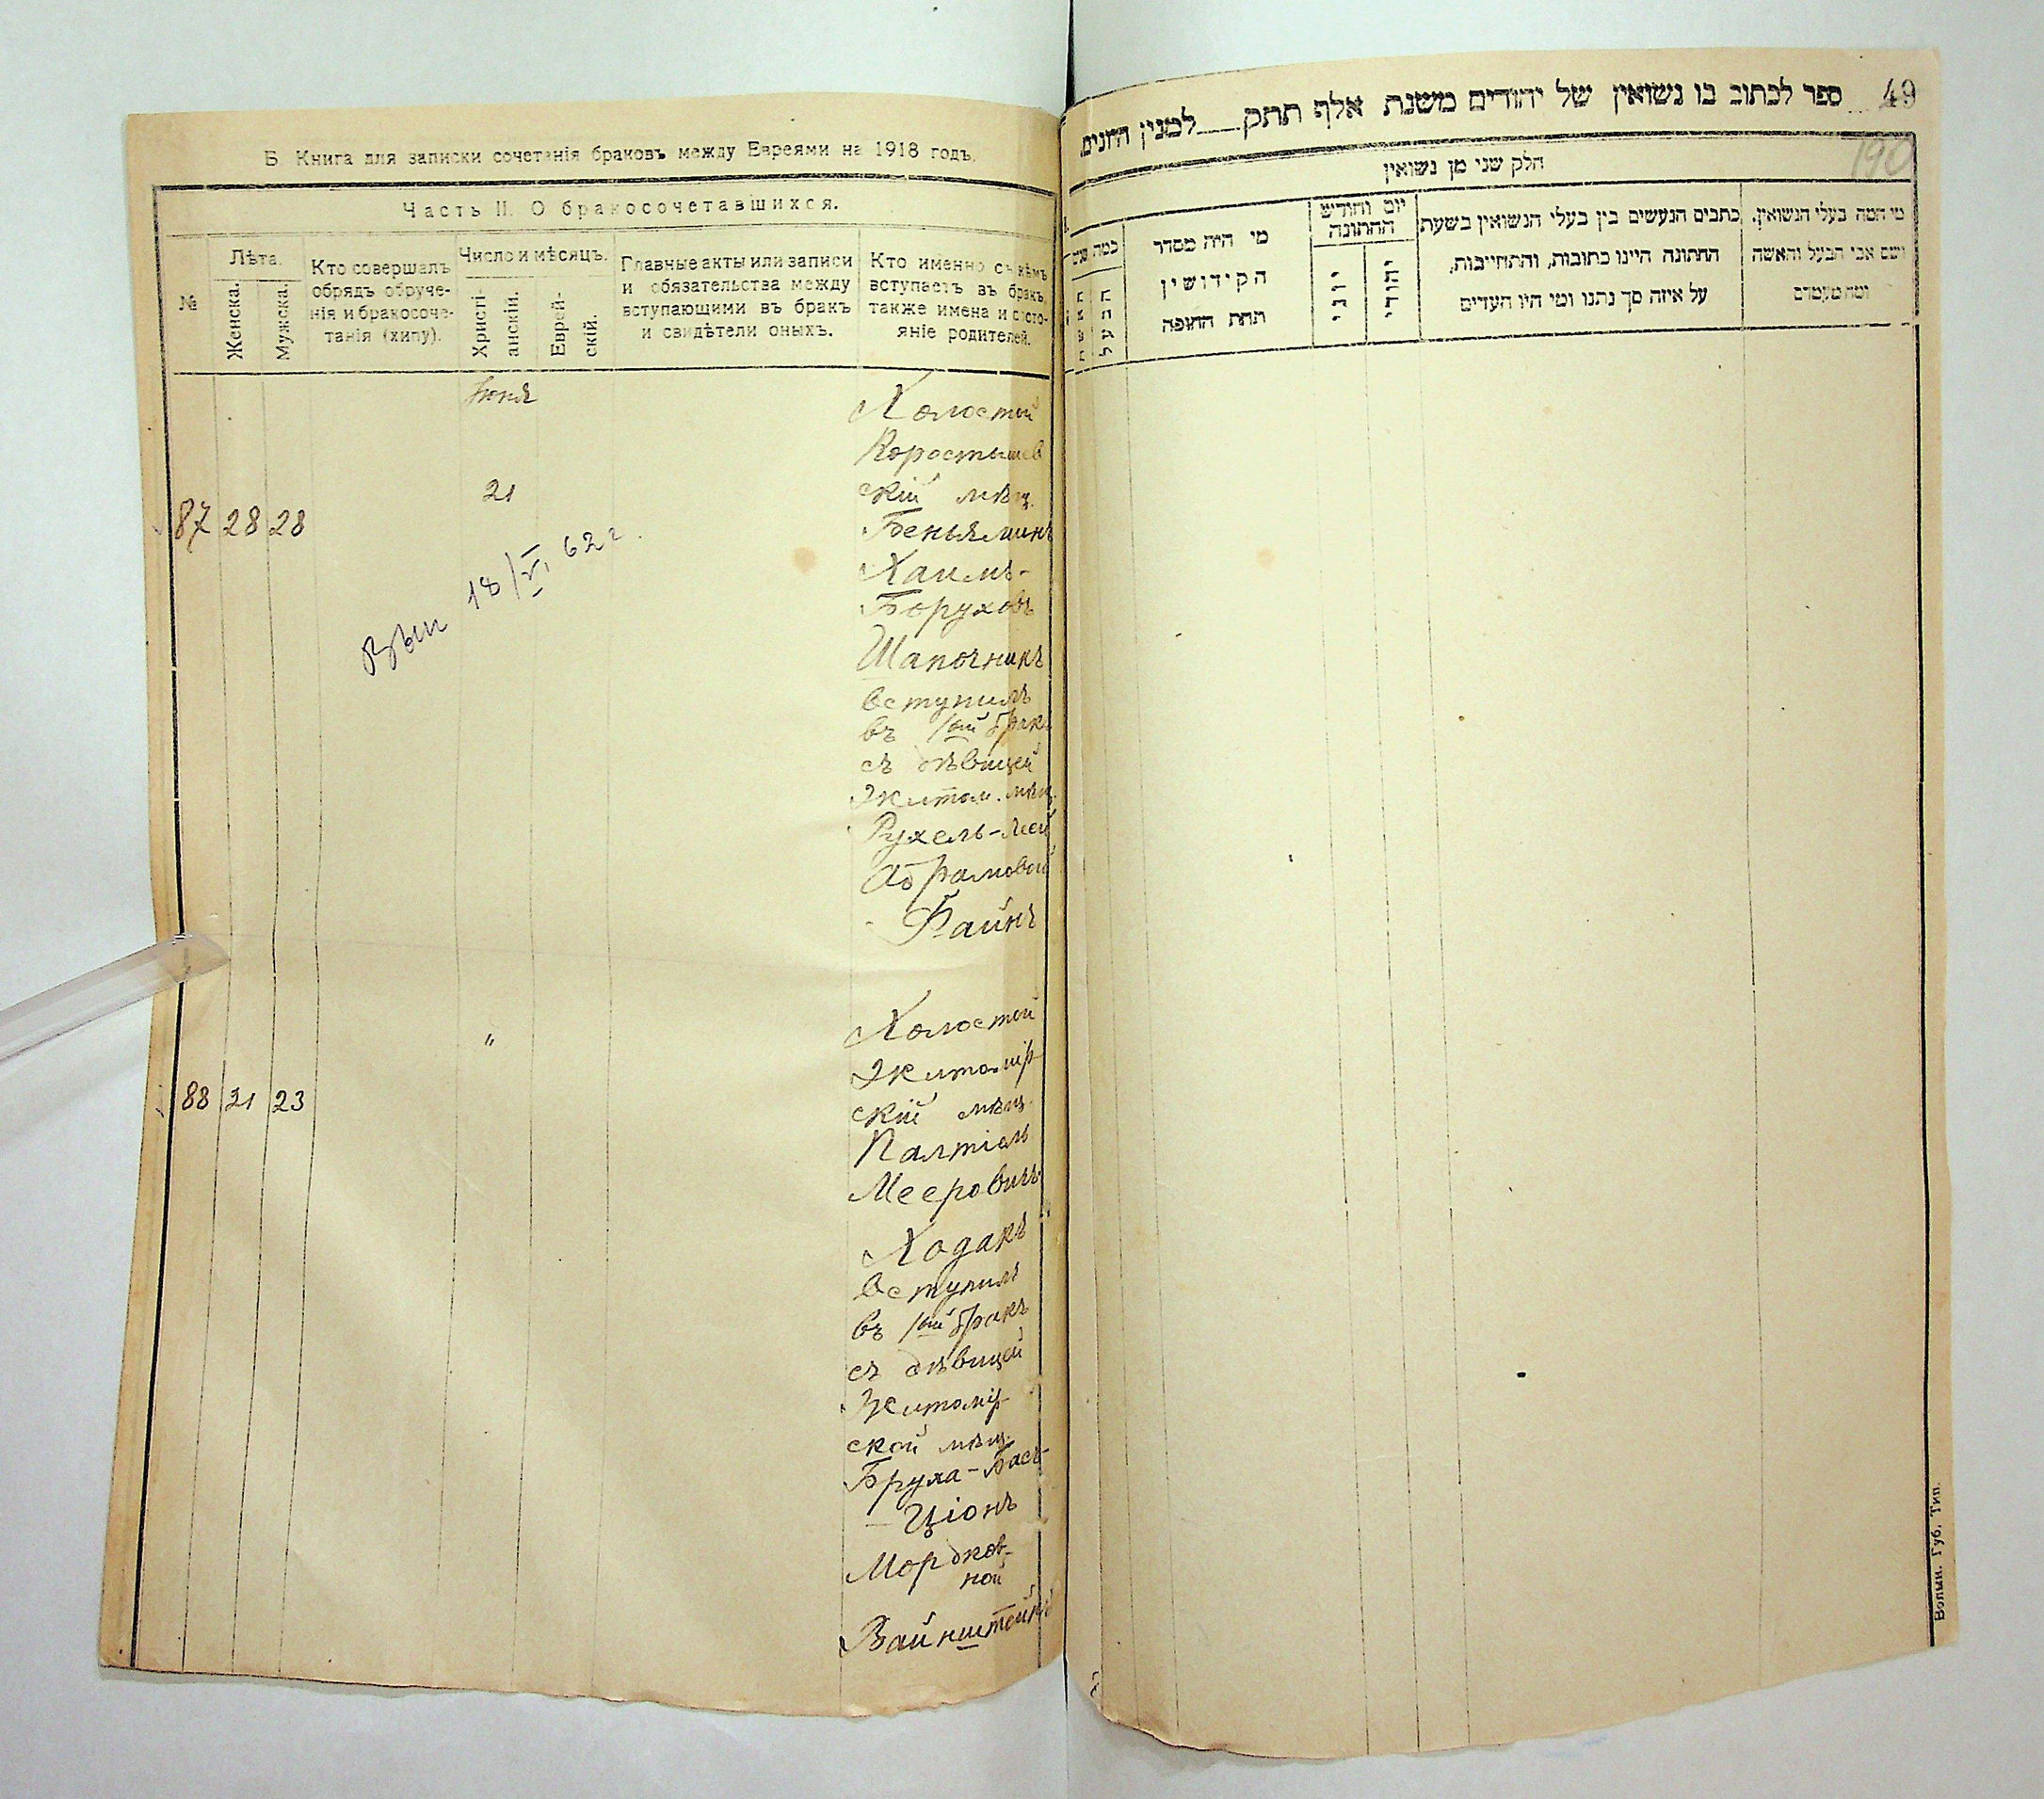 Б. Книга для записки сочетанія браковъ между Евреями на 1918 годъ.
Часть II. О бракосочетавшихся.
№
Лѣта.
Женска.
Мужска.
Кто совершалъ
обрядъ обруче-
нія и бракосоче-
танія (хипу).
Число и мѣсяцъ.
Христі-
анскіи.
Еврей-
скій.
Главные акты или записи
и обязательства между
вступающими въ бракъ
и свидѣтели оныхъ.
Кто именно съ кѣмъ
вступаетъ въ бракъ,
также имена и состо-
яніе родителей.
Іюня
Холостой
Коростышев
21
скій мѣщ.
87 28 28
Беньяминъ
Хаимъ-
Боруховъ
18/VI 62 г.
Шапочникъ
вступилъ
въ 1ый бракъ
съ дѣвицей
Житом. мѣщ.
Рухель-Леей
Абрамовой
Файнъ
Холостой
"
Житомір-
88 21 23
скій мѣщ.
Палтіель
Мееровичъ
Ходакъ
вступилъ
въ 1ый бракъ
съ дѣвицей
Житомір-
ской мѣщ.
Бруха-Бася-
-Ціонъ
Мордков-
ной
Вайнштейнъ
49
ספר לכתוב בו נשואין של יהודים משנת אלף תתק למנין היונים
190
חלק שני מן נשואין
מי המה בעלי הנשואין,
ושם אבי הבעל והאשה
ומה מעמדם
כתבים הנעשים בין בעלי הנשואין בשעת
החתונה היינו כתובות, והתחייבות,
על איזה סך נתנו ומי היו העדים
יום וחודש
החתונה
יהודי
יוני
מי היה מסדר
הקידושין
תחת החופה
כמה שנים
הבעל
האשה
Волын. Губ. Тип.